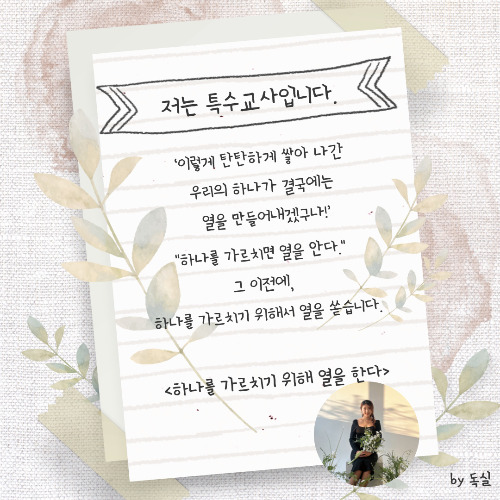 저는 특수교사입니다.
'이렇게 탄탄하게 쌓아 나간
우리의 하나가 결국에는
열을 만들어내겠구나!'
"하나를 가르치면 열을 안다."
그 이전에,
하나를 가르치기 위해서 열을 쏟습니다.
<하나를 가르치기 위해 열을 한다>
by 독실